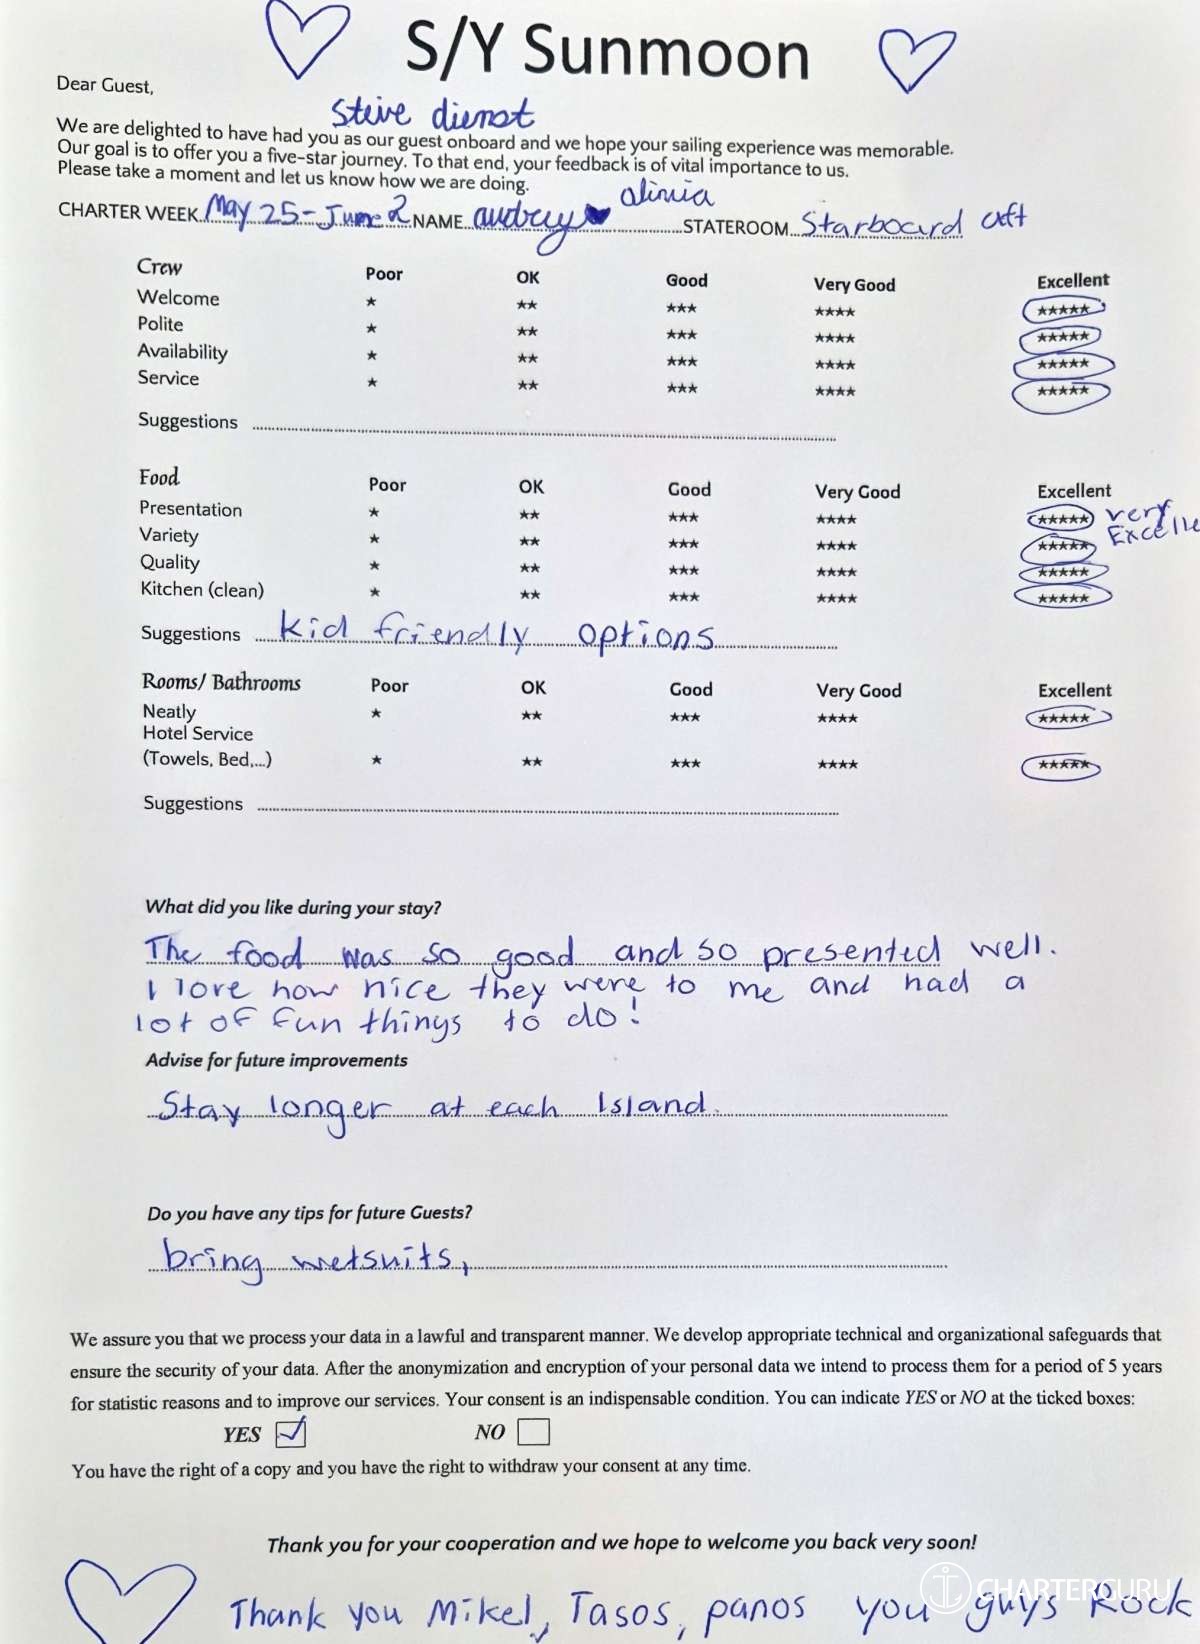 S/Y Sunmoon
Dear Guest,
steve dienst
We are delighted to have had you as our guest onboard and we hope your sailing experience was memorable.
Our goal is to offer you a five-star journey. To that end, your feedback is of vital importance to us.
Please take a moment and let us know how we are doing.
alinia
CHARTER WEEK May 25 - June 2 NAME audrey STATEROOM Starboard aft
Crew Poor OK Good Very Good Excellent
Welcome ★ ★★ ★★★ ★★★★ ★★★★★
Polite ★ ★★ ★★★ ★★★★ ★★★★★
Availability ★ ★★ ★★★ ★★★★ ★★★★★
Service ★ ★★ ★★★ ★★★★ ★★★★★
Suggestions
Food Poor OK Good Very Good Excellent
Presentation ★ ★★ ★★★ ★★★★ ★★★★★ very
Variety ★ ★★ ★★★ ★★★★ ★★★★★ Excelle
Quality ★ ★★ ★★★ ★★★★ ★★★★★
Kitchen (clean) ★ ★★ ★★★ ★★★★ ★★★★★
Suggestions kid friendly options
Rooms/ Bathrooms Poor OK Good Very Good Excellent
Neatly ★ ★★ ★★★ ★★★★ ★★★★★
Hotel Service
(Towels, Bed,...) ★ ★★ ★★★ ★★★★ ★★★★★
Suggestions
What did you like during your stay?
The food was so good and so presented well.
I love how nice they were to me and had a
lot of fun things to do!
Advise for future improvements
Stay longer at each Island.
Do you have any tips for future Guests?
bring wetsuits,
We assure you that we process your data in a lawful and transparent manner. We develop appropriate technical and organizational safeguards that
ensure the security of your data. After the anonymization and encryption of your personal data we intend to process them for a period of 5 years
for statistic reasons and to improve our services. Your consent is an indispensable condition. You can indicate YES or NO at the ticked boxes:
YES NO
You have the right of a copy and you have the right to withdraw your consent at any time.
Thank you for your cooperation and we hope to welcome you back very soon!
CHARTERGURU
Thank you Mikel, Tasos, panos you guys Rock